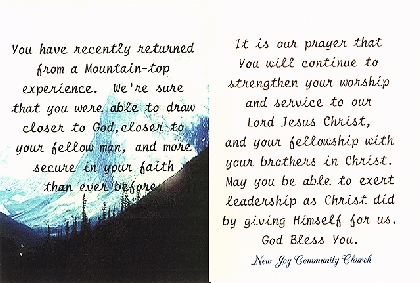 You have recently returned
from a Mountain-top
experience. We're sure
that you were able to draw
closer to God, closer to
your fellow man, and more
secure in your faith
than ever before
It is our prayer that
You will continue to
strengthen your worship
and service to our
Lord Jesus Christ,
and your fellowship with
your brothers in Christ.
May you be able to exert
leadership as Christ did
by giving Himself for us.
God Bless You.
New Joy Community Church